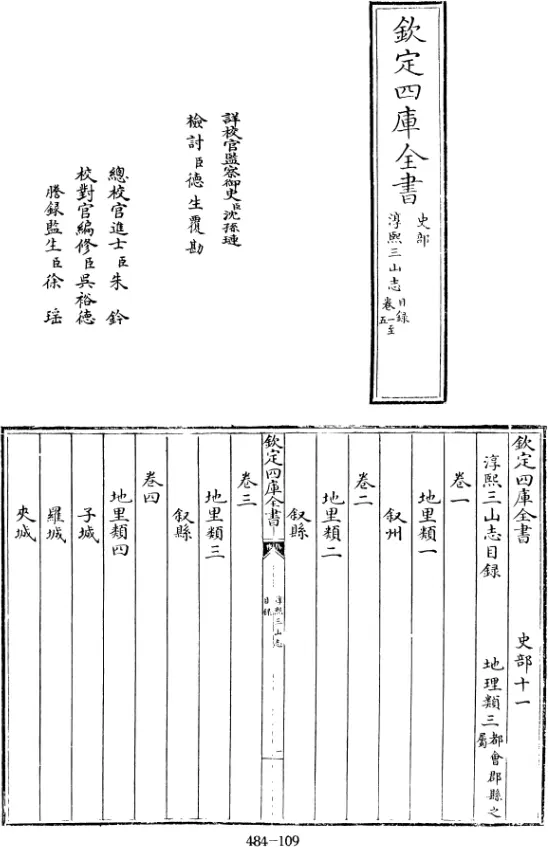 欽定四庫全書
史部
淳熙三山志 目録
卷一至
五
詳校官監察御史臣沈孫璉
檢討臣德生覆勘
總校官進士臣朱鈐
校對官編修臣吳裕德
謄録監生臣徐瑶
欽定四庫全書 史部十一
淳熙三山志目録 地理類三都會郡縣之屬
卷一
地里類一
叙州
卷二
地里類二
叙縣
欽定四庫全書
淳熙三山志
目録
一
卷三
地里類三
叙縣
卷四
地里類四
子城
羅城
夾城
484-109